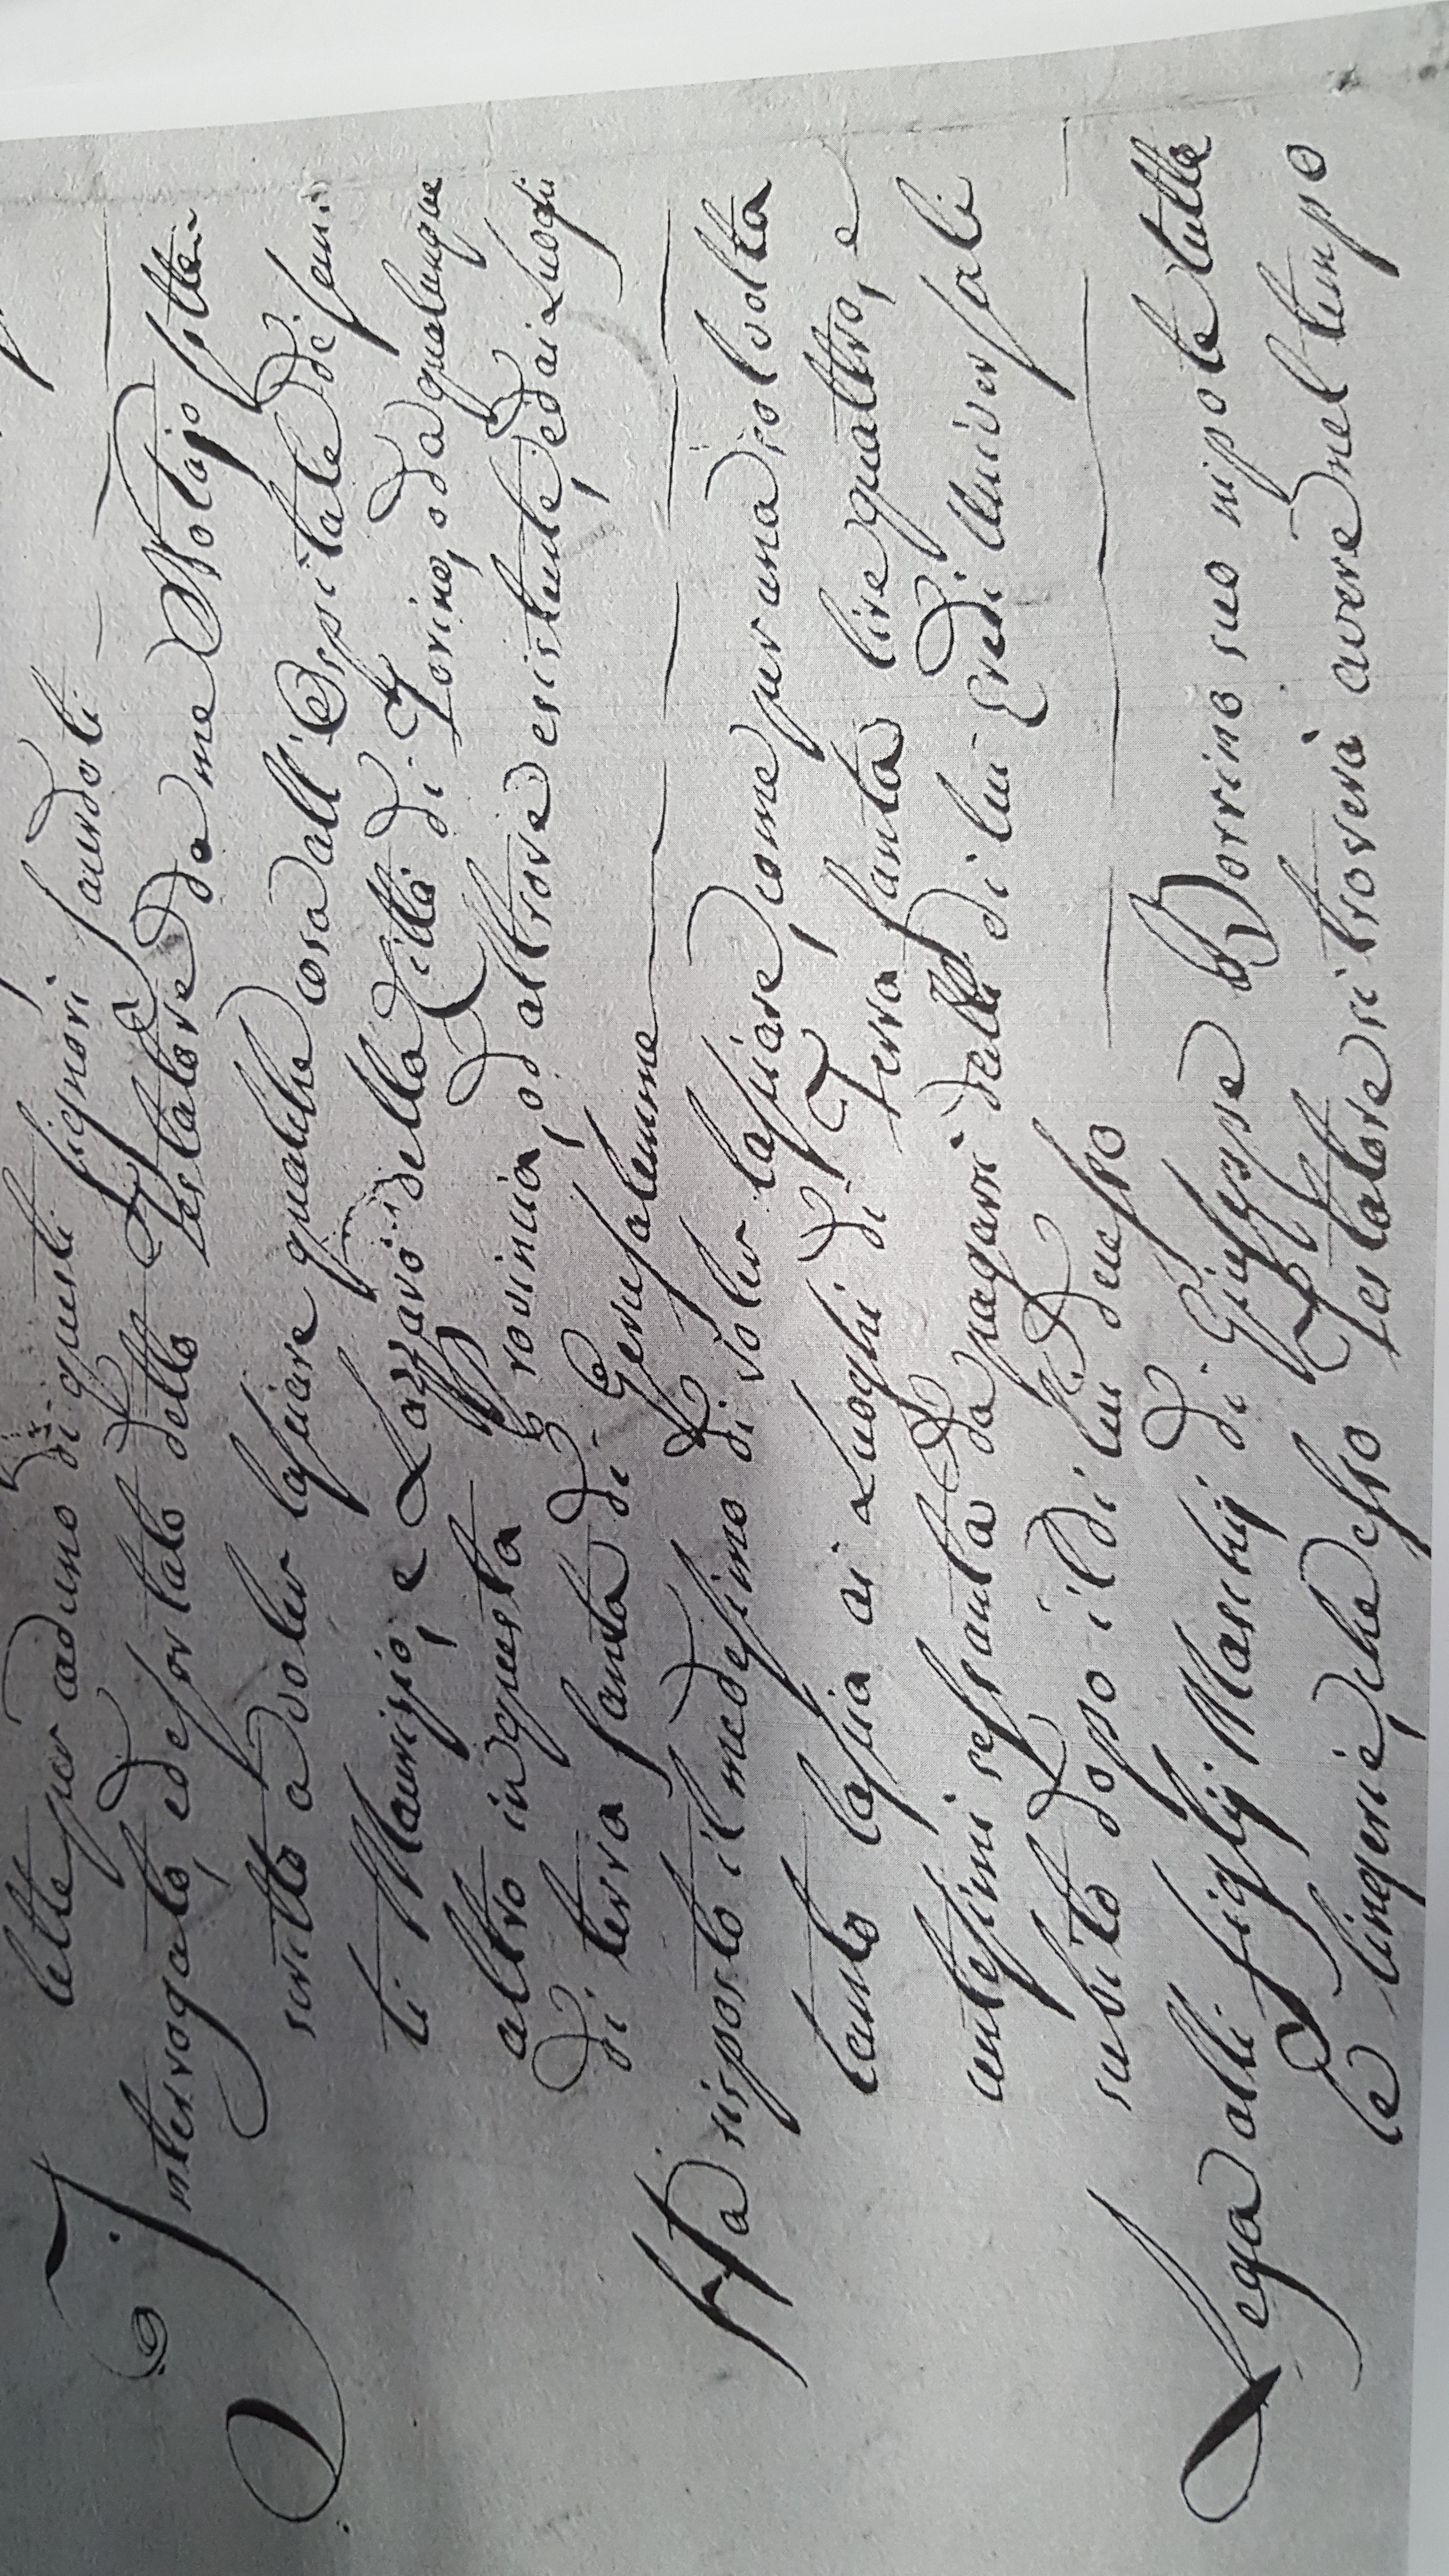 lette per caduno di questi signori sacerdoti
Interrogato, ed esortato detto Sig.r Testatore da me Notajo sotto
scritto a voler lasciare qualche cosa all'Ospitale de' santi
ti Maurizio, e Lazzaro della Città di Torino, o da qualunque
altro in questa Provincia, od altrove esistente, ed ai Luoghi
di terra santa di Gerusalemme
Ha risposto il medesimo di voler lasciare, come per una sol volta
tanto lascia ai Luoghi di Terra santa lire quattro, e
centesimi sessanta da pagarsi dalli di lui Eredi Universali
subito dopo il di lui decesso
Lega alli figlij Maschij di Giuseppe Borrino suo nipote tutte
le lingerie, che esso Sig.r Testatore si troverà avere nel tempo